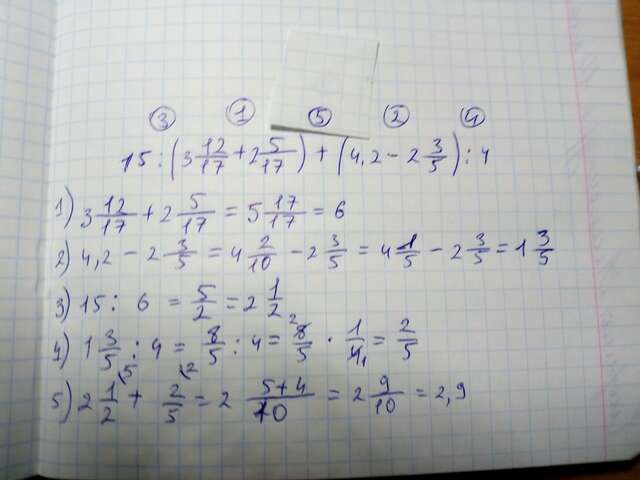 ③ ① ⑤ ② ④
15 : (3 12/17 + 2 5/17) + (4,2 - 2 3/5) : 4
1) 3 12/17 + 2 5/17 = 5 17/17 = 6
2) 4,2 - 2 3/5 = 4 2/10 - 2 3/5 = 4 1/5 - 2 3/5 = 1 3/5
3) 15 : 6 = 5/2 = 2 1/2
4) 1 3/5 : 4 = 8/5 : 4 = 8/5 · 1/4 = 2/5
5) 2 1/2 + 2/5 = 2 5+4/10 = 2 9/10 = 2,9